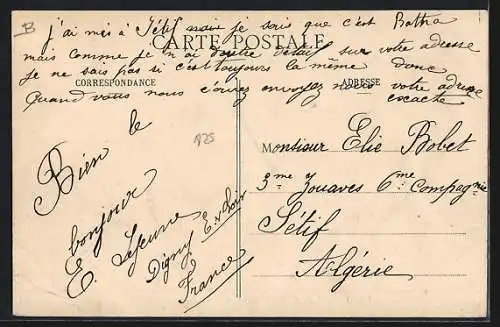 B
j'ai mis à Sétif mais je sais que c'est Batna
CARTE POSTALE
mais comme je n'ai votre sur votre adresse
je ne sais pas si c'est toujours la même donc
CORRESPONDANCE
ADRESSE
Quand vous nous écrirez envoyez nous votre adresse
exacte
Bien le
bonjour
E. Lejeune
Digny E. et Loir
France
Monsieur Elie Bobet
3me Zouaves 6me Compagnie
Sétif
Algérie